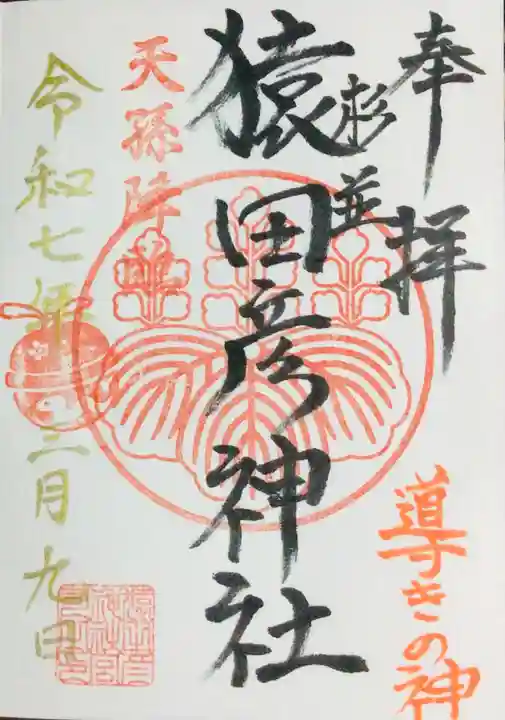 奉拝
導きの神
杉並
猿田彦神社
天孫降臨
令和七年二月九日